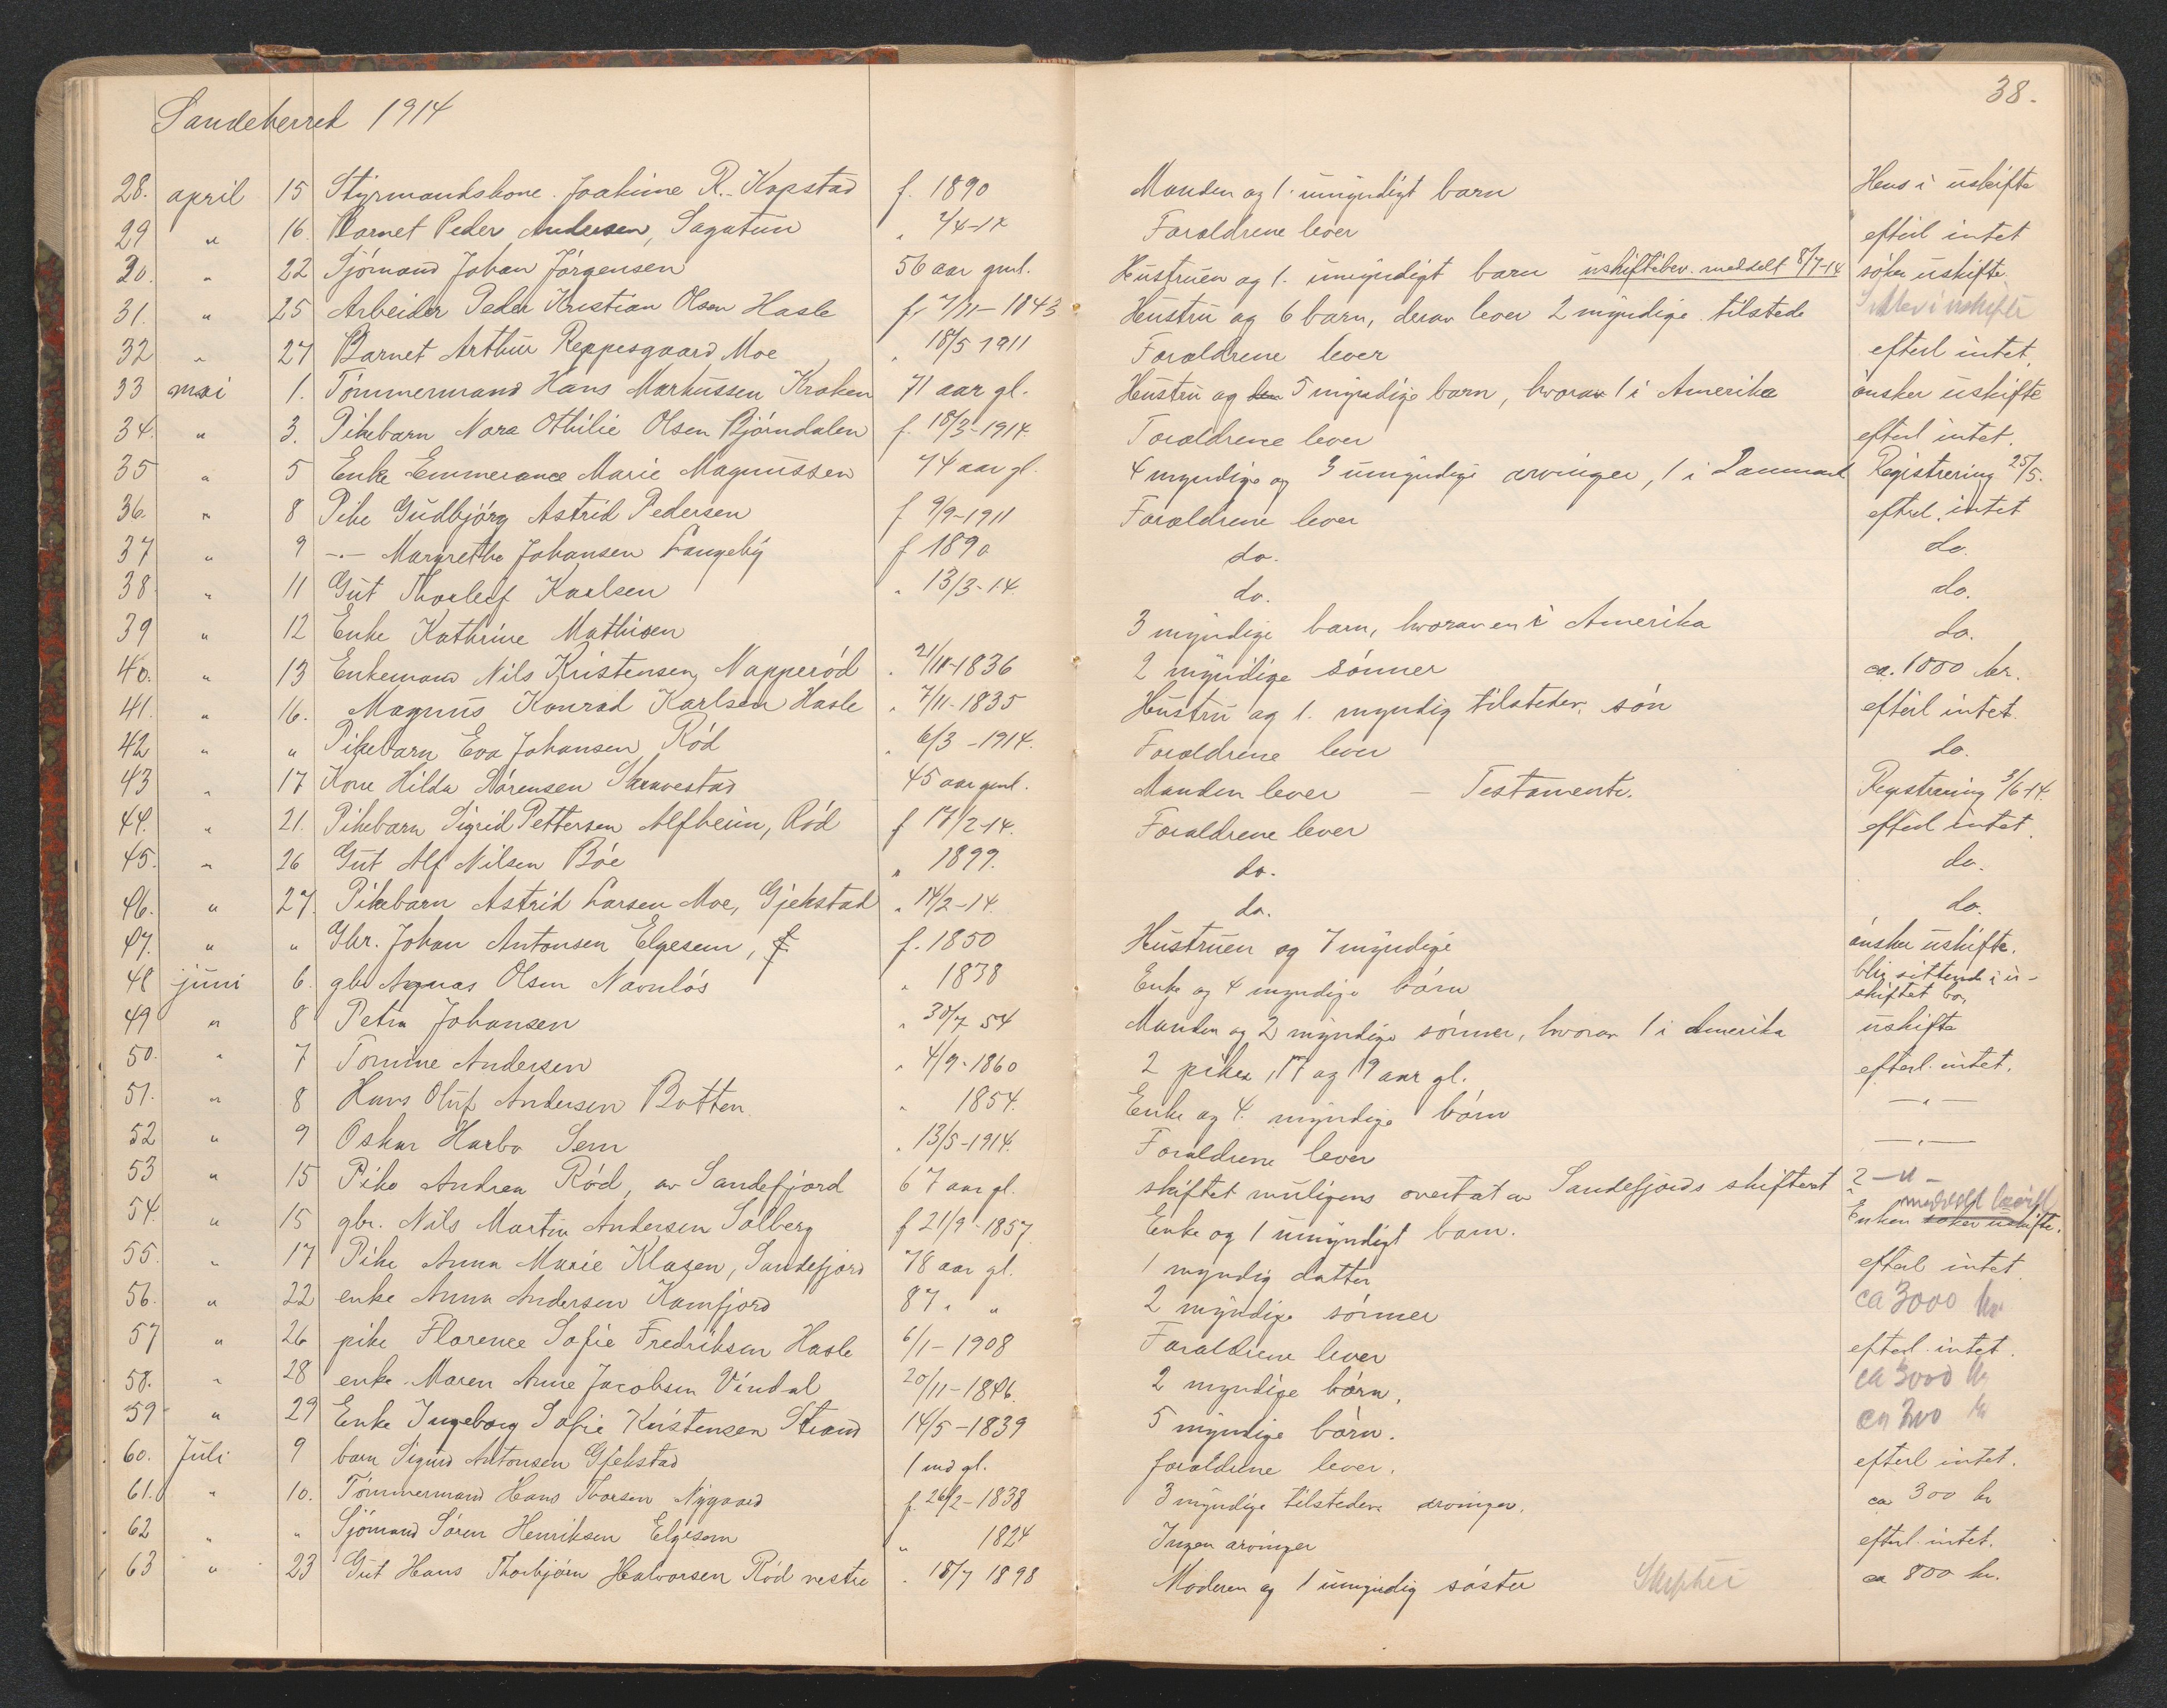 38.
Sandeherred 1914
28. april 15 Styrmandskone Joakime R. Kopstad f. 1890 Manden og 1. umyndigt barn Hens i uskifte
29 " 16. Barnet Peder Andersen, Sagatun " 2/4-14 Forældrene lever efterl intet
30. " 22 Sjömand Johan Jörgensen 56 aar gml. Hustruen og 1. umyndigt barn uskiftebev. meddelt 8/7-14 söker uskifte.
31. " 25 Arbeider Peder Kristian Olsen Hasle f. 7/11-1843 Hustru og 6 barn, derav lever 2 myndige tilstede i uskifte
32 " 27 Barnet Arthur Reppesgaard Moe " 18/5 1911 Forældrene lever efterl intet
33 mai 1. Tömmermand Hans Markussen Kraken 71 aar gl. Hustru og 5 myndige barn, hvorav 1 i Amerika önsker uskifte
34. " 3. Pikebarn Nora Othilie Olsen Björndalen f. 18/3-1914. Forældrene lever efterl intet.
35 " 5 Enke Emmerance Marie Magnussen 74 aar gl. 4 myndige og 3 umyndige arvinger, 1 i Danmark Registrering 25/5.
36. " 8 Pike Gudbjörg Astrid Pedersen f 9/9-1911 Forældrene lever efterl. intet
37 " 9 -"- Margrethe Johansen Langeby f 1890 do. do.
38 " 11 Gut Thorleif Karlsen " 13/3-14. do. do.
39 " 12 Enke Kathrine Mathisen 3 myndige barn, hvorav en i Amerika do.
40. " 13 Enkemand Nils Kristensen Napperöd " 21/11-1836 2 myndige sönner ca. 1000 kr.
41. " 16. Magnus Konrad Karlsen Hasle " 7/11-1835 Hustru og 1. myndig tilstedev. sön efterl intet.
42 " " Pikebarn Eva Johansen Röd " 6/3-1914. Forældrene lever do.
43 " 17 Kone Hilda Sörensen Skravestad 45 aar gml. Manden lever - Testamente. Registrering 3/6-14.
44. " 21. Pikebarn Sigrid Pettersen Alfheim, Röd f 17/2-14. Forældrene lever efterl intet.
45. " 26 Gut Alf Nilsen Böe " 1899. do. do.
46. " 27. Pikebarn Astrid Larsen Moe, Gjekstad " 14/2-14. do. do.
47. " " Gbr. Johan Antonsen Elgesem, f. f. 1850 Hustruen og 7 myndige önsker uskifte.
48 juni 6. gbr Olsen Navnlös " 1838 Enke og 4 myndige börn bliv sittende i u-
skiftet bo,
49 " 8 Petra Johansen " 30/7 54 Manden og 2 myndige sönner, hvorav 1 i Amerika uskifte
50. " 7 Tomine Andersen " 4/9-1860 2 piker, 17 og 19 aar gl. efterl. intet.
51. " 8 Hans Oluf Andersen Botten " 1854. Enke og 4. myndige börn —"—
52 " 9 Oskar Harbo Sem " 13/5-1914. Forældrene lever —"—
53 " 15 Pike Andrea Röd, av Sandefjord 67 aar gl. skiftet muligens overtat av Sandefjords skifteret ? -"-
54. " 15 gbr. Nils Martin Andersen Solberg f 21/9-1857 Enke og 1 umyndigt barn. Enken söker uskifte. meddelt
55. " 17 Pike Anna Marie Klasen, Sandefjord 78 aar gl. 1 myndig datter efterl intet
56. " 22 enke Anna Andersen Kamfjord 87 " " 2 myndige sönner ca 3000 kr
57 " 26 pike Florence Sofie Fredriksen Hasle 6/1-1908 Forældrene lever efterl. intet.
58. " 28 enke Maren Anne Jacobsen Vindal 20/11-1846. 2 myndige börn, ca 3000 kr
59 " 29 Enke Ingeborg Sofie Kristensen Strand 14/5-1839 5 myndige börn. ca 300 kr
60. Juli 9 barn Sigurd Antonsen Gjekstad 1 md gl. forældrene lever. efterl intet.
61. " 10. Tömmermand Hans Thorsen Nygaard f. 26/2-1838 3 myndige tilstedev. arvinger. ca 300 kr
62 " " Sjömand Sören Henriksen Elgesem " 1824 Ingen arvinger efterl. intet.
63 " 23 Gut Hans Thorbjörn Halvorsen Röd vestre " 18/7 1898 Moderen og 1 umyndig söster ca 800 kr.